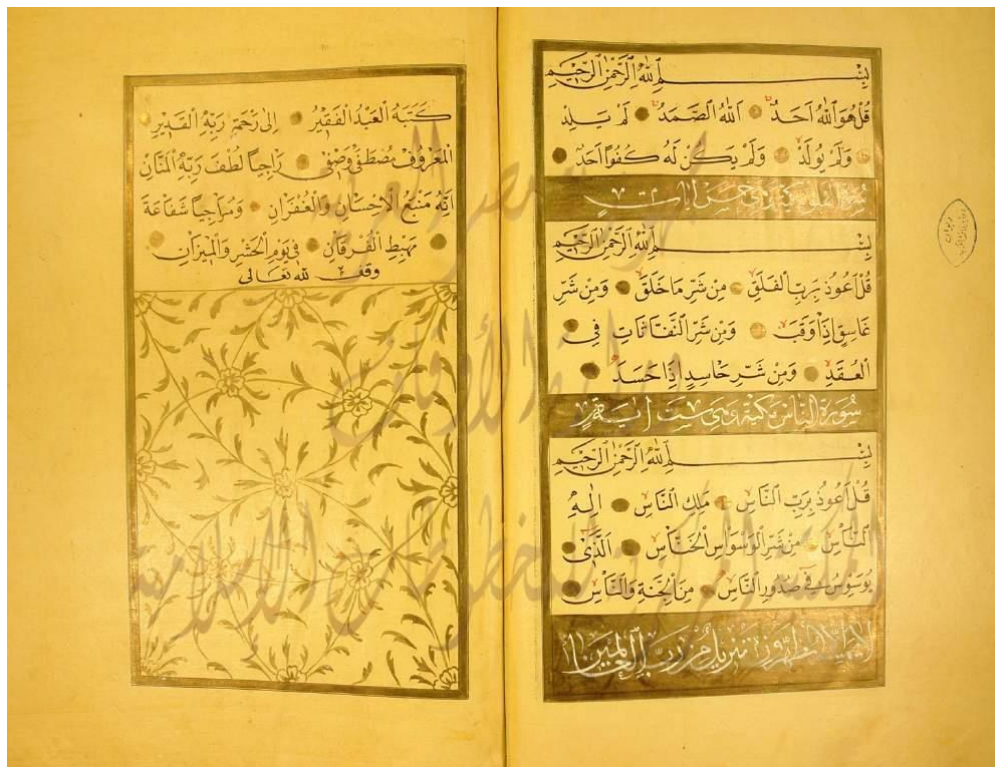 بِسْمِ اللهِ الرَّحْمٰنِ الرَّحِيمِ
قُلْ هُوَ اللهُ اَحَدٌ اَللهُ الصَّمَدُ لَمْ يَلِدْ
وَلَمْ يُولَدْ وَلَمْ يَكُنْ لَهُ كُفُوًا اَحَدٌ
سورة الفلق مكية وهي خمس ايات
بِسْمِ اللهِ الرَّحْمٰنِ الرَّحِيمِ
قُلْ اَعُوذُ بِرَبِّ الْفَلَقِ مِنْ شَرِّ مَا خَلَقَ وَمِنْ شَرِّ
غَاسِقٍ اِذَا وَقَبَ وَمِنْ شَرِّ النَّفَّاثَاتِ فِي
الْعُقَدِ وَمِنْ شَرِّ حَاسِدٍ اِذَا حَسَدَ
سورة الناس مكية وهي ست اية
بِسْمِ اللهِ الرَّحْمٰنِ الرَّحِيمِ
قُلْ اَعُوذُ بِرَبِّ النَّاسِ مَلِكِ النَّاسِ اِلٰهِ
النَّاسِ مِنْ شَرِّ الْوَسْوَاسِ الْخَنَّاسِ اَلَّذِي
يُوَسْوِسُ فِي صُدُورِ النَّاسِ مِنَ الْجِنَّةِ وَالنَّاسِ
لا يمسه الا المطهرون تنزيل من رب العالمين
كَتَبَهُ الْعَبْدُ الْفَقِيرُ اِلٰى رَحْمَةِ رَبِّهِ الْقَدِيرِ
الْمَعْرُوفُ مُصْطَفٰى وَصْفِي رَاجِيًا لُطْفَ رَبِّهِ الْمَنَّانِ
اِنَّهُ مَنْبَعُ الْاِحْسَانِ وَالْغُفْرَانِ وَ رَاجِيًا شَفَاعَةَ
مَهْبِطِ الْفُرْقَانِ فِي يَوْمِ الْحَشْرِ وَالْمِيزَانِ
وقف لله تعالى